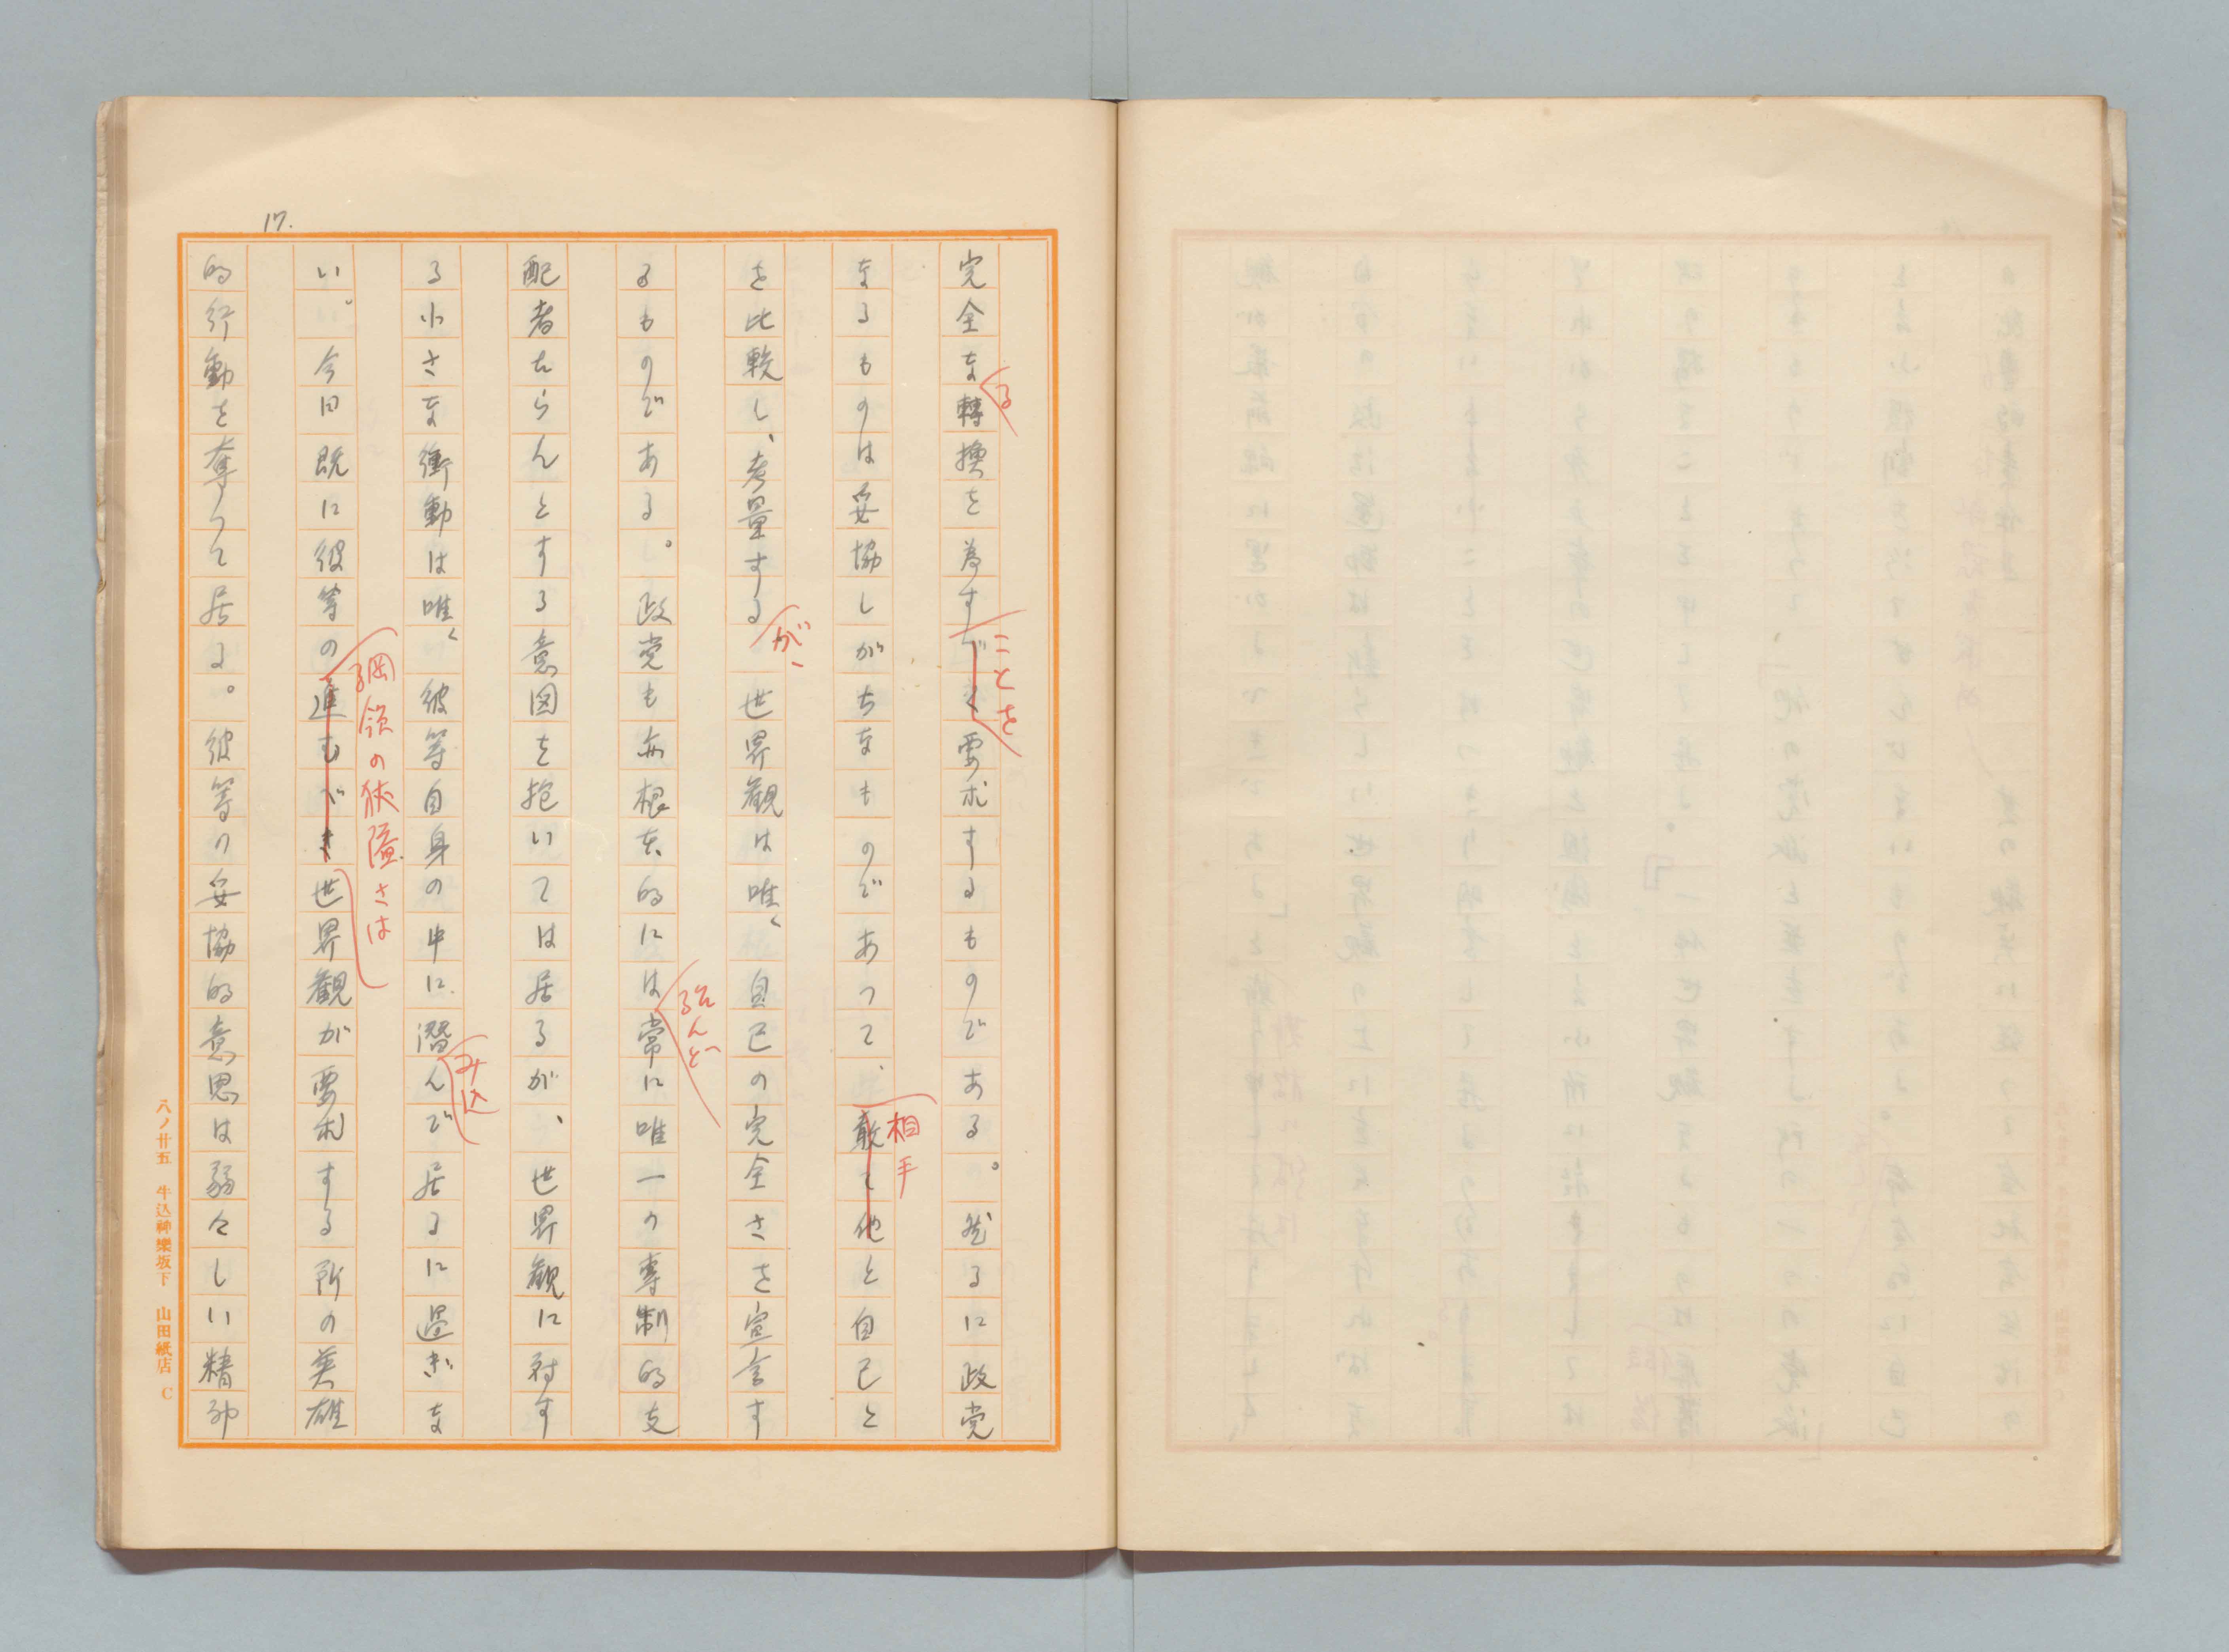 17.
完全な轉換を為すべく要求するものである。然るに政党
る
ことを
なるものは妥協しがちなものであつて、敢て他と自己と
相手
を比較し、考量する 世界観は唯〻自己の完全さを宣言す
が、
るものである。政党も亦根本的には常に唯一の専制的支
殆んど
配者たらんとする意図を抱いては居るが、世界観に対す
る小さな衝動は唯〻彼等自身の中に潜んで居るに過ぎな
み込
い。今日既に彼等の進むべき世界観が要求する所の英雄
綱領の狭隘さは
的行動を奪つて居る。彼等の妥協的意思は弱々しい精神
八ノ廿五 牛込神樂坂下 山田紙店 C